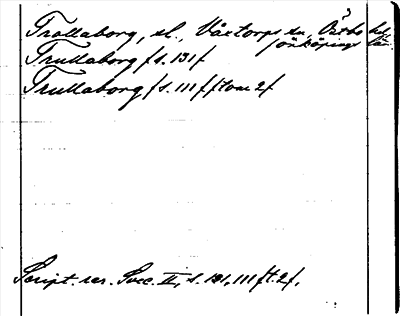 Trollaborg, sl., Våxtorps sn, Östbo hd
Jönköpings län
Trullaborg /s. 131/
Trullaborg /s. 111/ /tom 2/
Script. rer. Svec. II, s. 131, 111 /t. 2/.